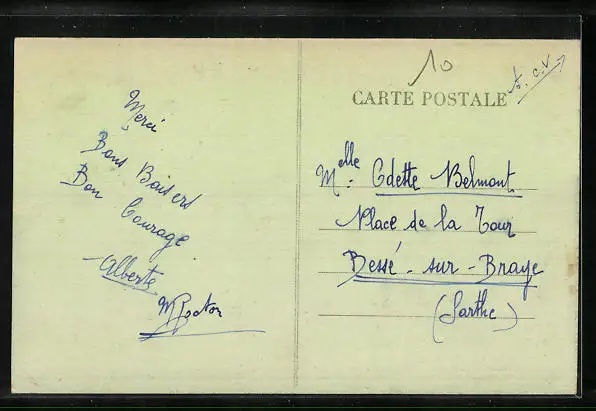 Merci
Bons Baisers
Bon Courage
Alberte
10
CARTE POSTALE
Melle : Odette Belmont
Place de la Tour
Bessé-sur-Braye
(Sarthe)